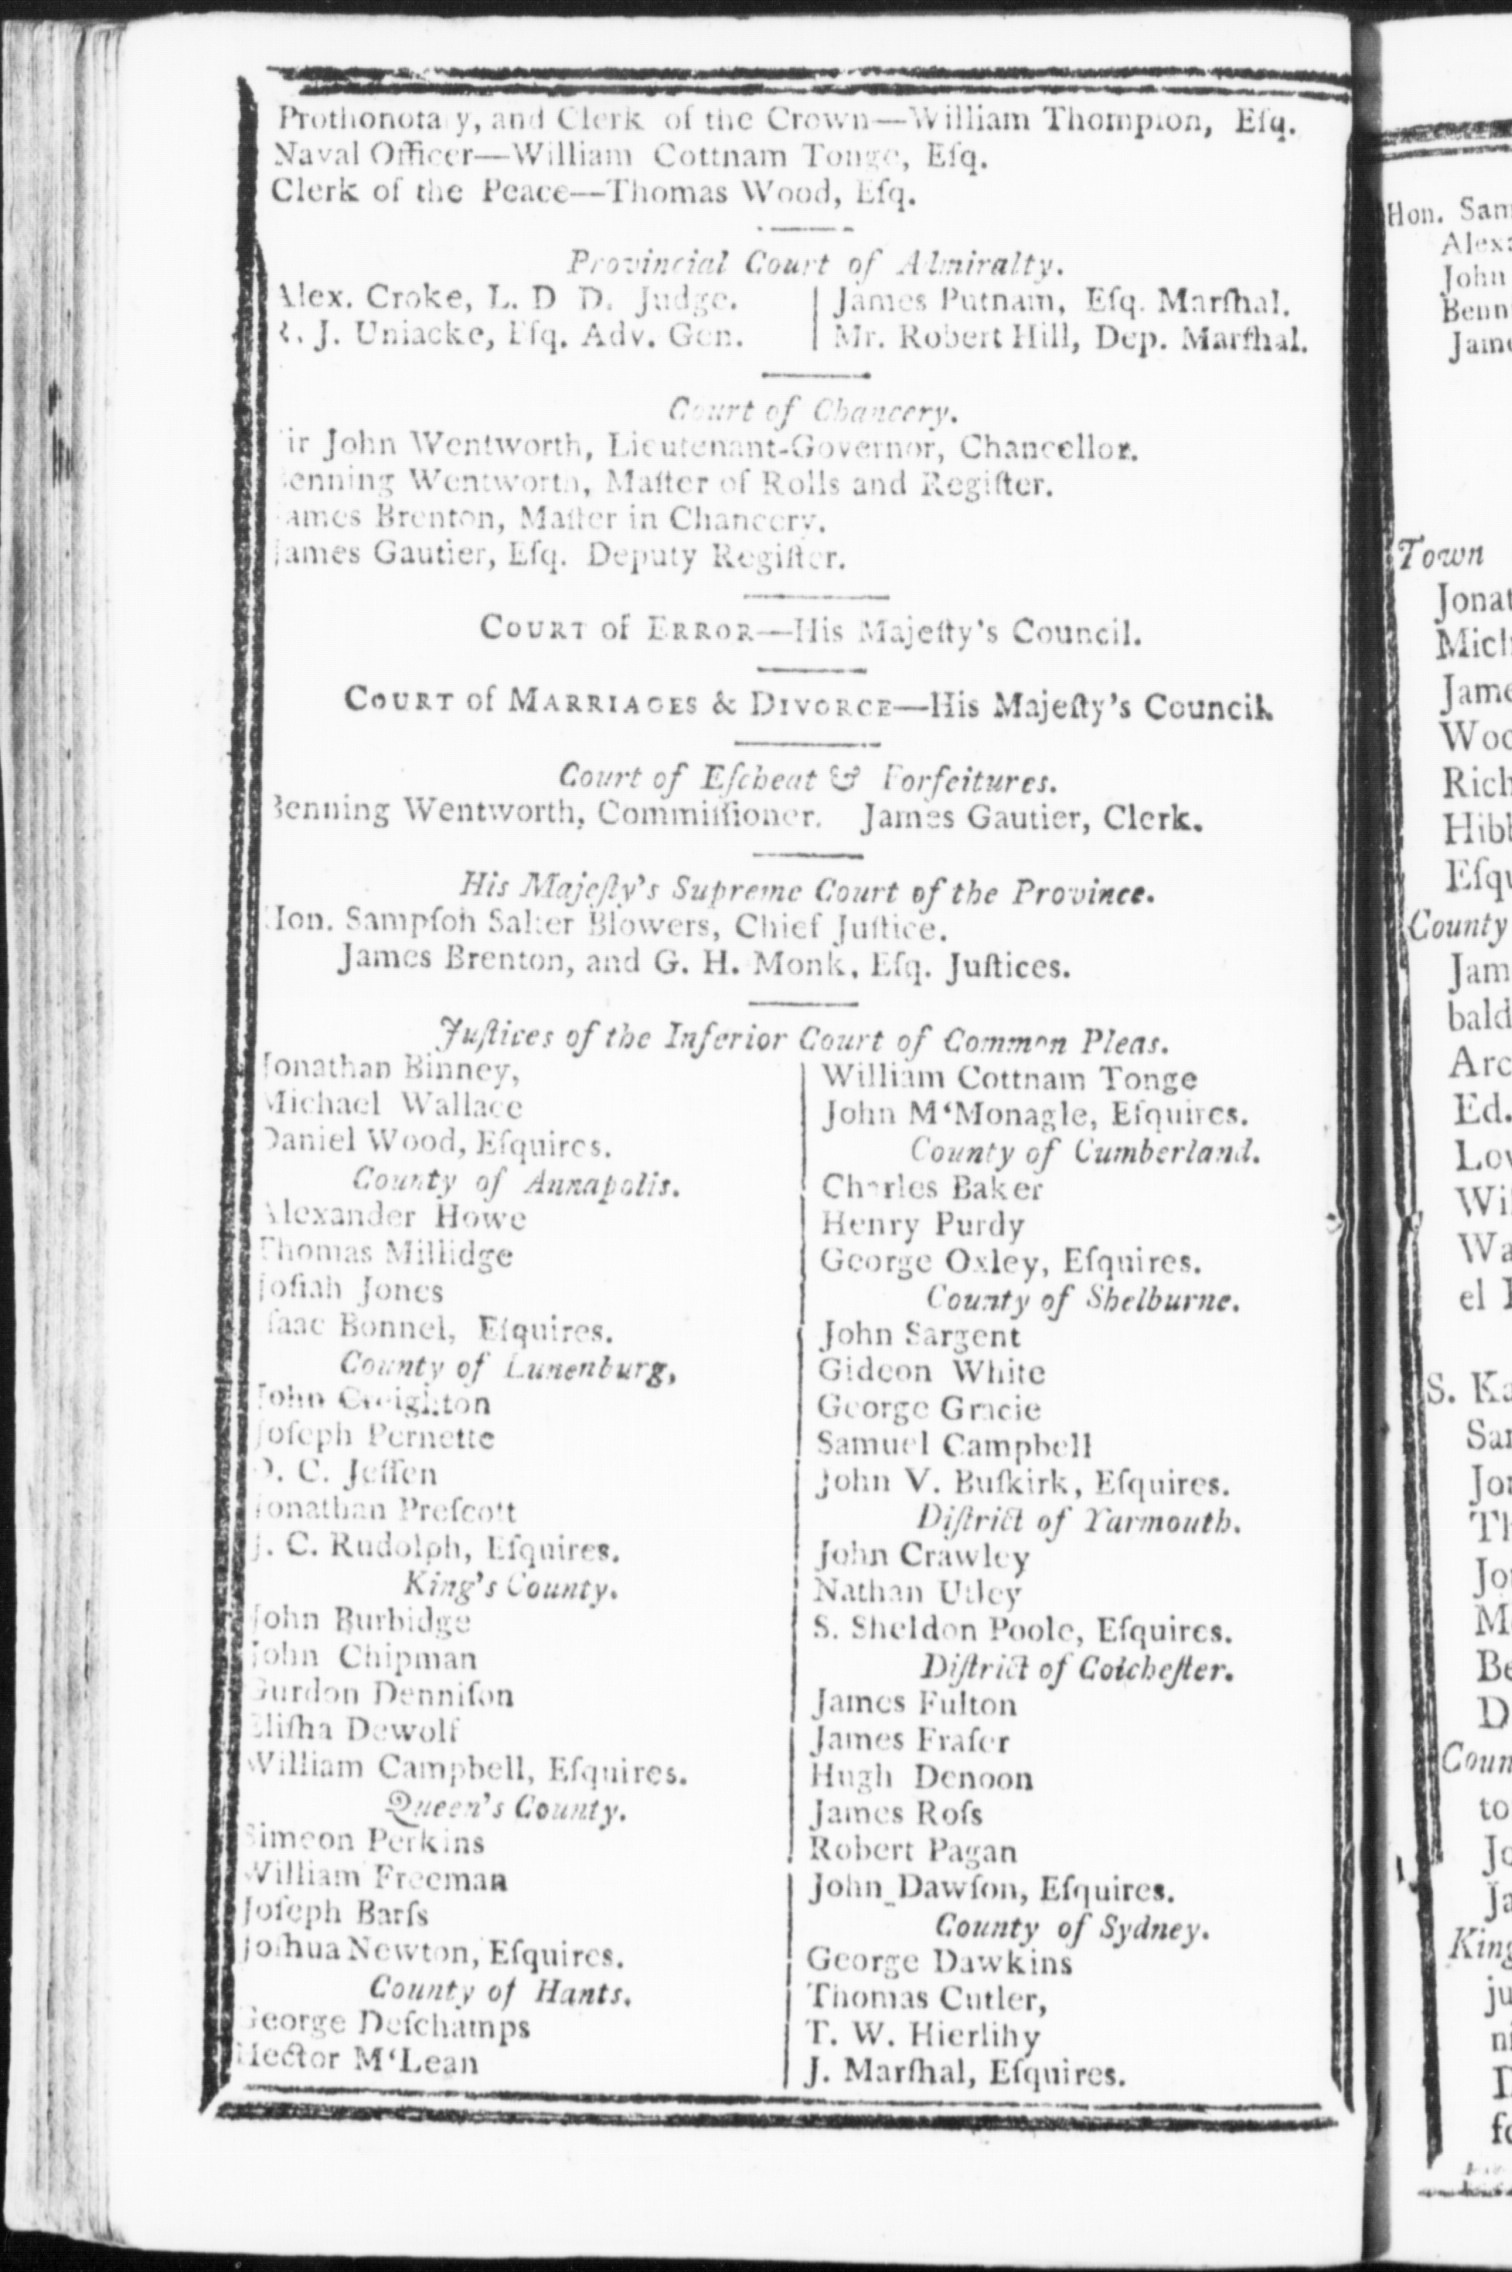 Prothonotary, and Clerk of the Crown—William Thompſon, Eſq.
Naval Officer—William Cottnam Tonge, Eſq.
Clerk of the Peace—Thomas Wood, Eſq.
Provincial Court of Admiralty.
Alex. Croke, L. D D. Judge.
R. J. Uniacke, Eſq. Adv. Gen.
James Putnam, Eſq. Marſhal.
Mr. Robert Hill, Dep. Marſhal.
Court of Chancery.
Sir John Wentworth, Lieutenant-Governor, Chancellor.
Benning Wentworth, Maſter of Rolls and Regiſter.
James Brenton, Maſter in Chancery.
James Gautier, Eſq. Deputy Regiſter.
COURT of ERROR—His Majeſty's Council.
COURT of MARRIAGES & DIVORCE—His Majeſty's Council.
Court of Eſcheat & Forfeitures.
Benning Wentworth, Commiſſioner. James Gautier, Clerk.
His Majeſty's Supreme Court of the Province.
Hon. Sampſoh Salter Blowers, Chief Juſtice.
James Brenton, and G. H. Monk, Eſq. Juſtices.
Juſtices of the Inferior Court of Common Pleas.
Jonathan Binney,
Michael Wallace
Daniel Wood, Eſquires.
County of Annapolis.
Alexander Howe
Thomas Millidge
Joſiah Jones
Iſaac Bonnel, Eſquires.
County of Lunenburg,
John Creighton
Joſeph Pernette
D. C. Jeſſen
Jonathan Preſcott
J. C. Rudolph, Eſquires.
King's County.
John Burbidge
John Chipman
Gurdon Denniſon
Eliſha Dewolf
William Campbell, Eſquires.
Queen's County.
Simeon Perkins
William Freeman
Joſeph Barſs
Joſhua Newton, Eſquires.
County of Hants.
George Deſchamps
Hector M'Lean
William Cottnam Tonge
John M'Monagle, Eſquires.
County of Cumberland.
Charles Baker
Henry Purdy
George Oxley, Eſquires.
County of Shelburne.
John Sargent
Gideon White
George Gracie
Samuel Campbell
John V. Buſkirk, Eſquires.
Diſtrict of Yarmouth.
John Crawley
Nathan Utley
S. Sheldon Poole, Eſquires.
Diſtrict of Colcheſter.
James Fulton
James Fraſer
Hugh Denoon
James Roſs
Robert Pagan
John Dawſon, Eſquires.
County of Sydney.
George Dawkins
Thomas Cutler,
T. W. Hierlihy
J. Marſhal, Eſquires.
Hon.
John
Town
County
S.
Ed.
el
to